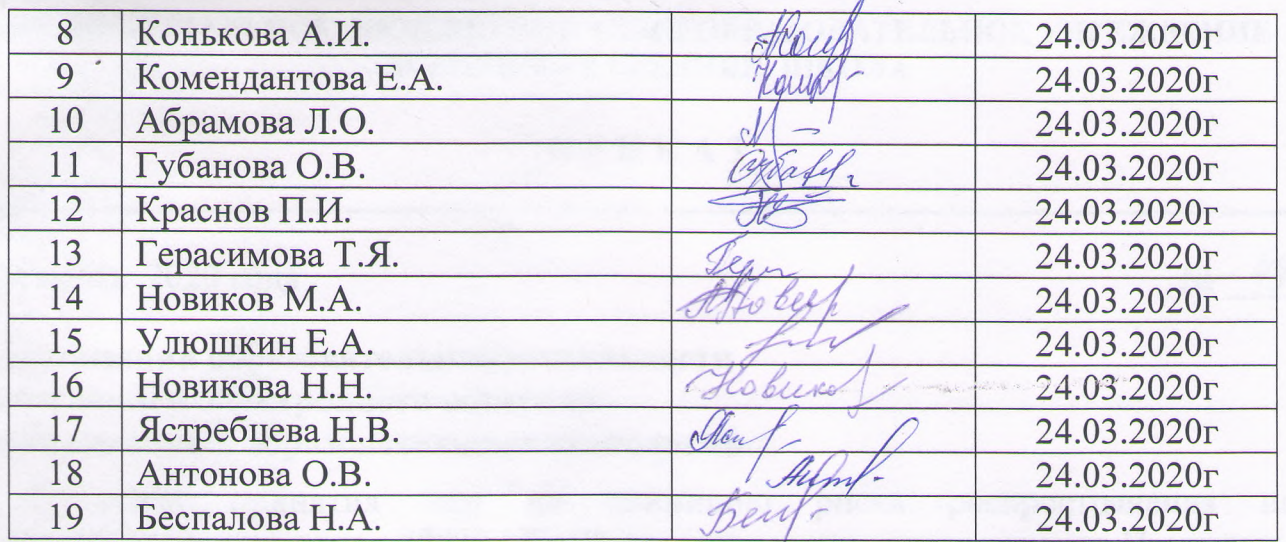 8 Конькова А.И. 24.03.2020г
9 Комендантова Е.А. 24.03.2020г
10 Абрамова Л.О. 24.03.2020г
11 Губанова О.В. 24.03.2020г
12 Краснов П.И. 24.03.2020г
13 Герасимова Т.Я. 24.03.2020г
14 Новиков М.А. 24.03.2020г
15 Улюшкин Е.А. 24.03.2020г
16 Новикова Н.Н. 24.03.2020г
17 Ястребцева Н.В 24.03.2020г
18 Антонова О.В. 24.03.2020г
19 Беспалова Н.А. 24.03.2020г